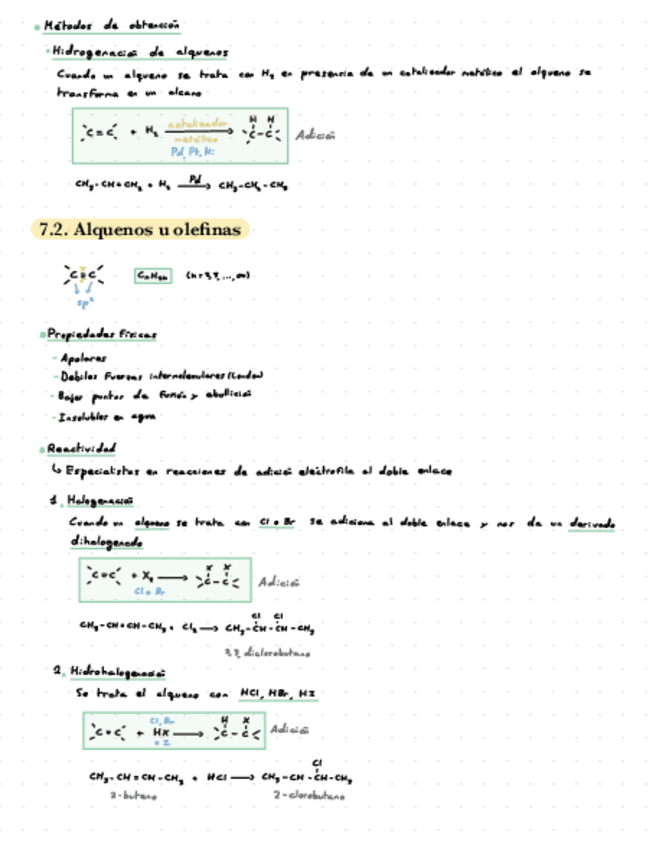 Métodos de obtención
Hidrogenación de alquenos
Cuando un alqueno se trata con H₂ en presencia de un catalizador metálico el alqueno se
transforma en un alcano
C=C + H₂ catalizador metálico Pd, Pt, Ni → H H C-C Adición
CH₃-CH=CH₂ + H₂ Pd → CH₃-CH₂-CH₃
7.2. Alquenos u olefinas
C=C CnH2n
sp²
Propiedades Físicas
- Apolares
- Débiles Fuerzas intermoleculares (London)
- Bajos puntos de fusión y ebullición
- Insolubles en agua
Reactividad
↳ Especialistas en reacciones de adición electrófila al doble enlace
1. Halogenación
Cuando un alqueno se trata con Cl o Br se adiciona al doble enlace y nos da un derivado
dihalogenado
C=C + X₂ → X X C-C Adición
Cl o Br
Cl Cl
CH₃-CH=CH-CH₃ + Cl₂ → CH₃-CH-CH-CH₃
diclorobutano
2. Hidrohalogenación
Se trata el alqueno con HCl, HBr, HI
C=C + HX → H X C-C Adición
Cl, Br
o I
Cl
CH₃-CH=CH-CH₃ + HCl → CH₃-CH-CH-CH₃
2-buteno 2-clorobutano